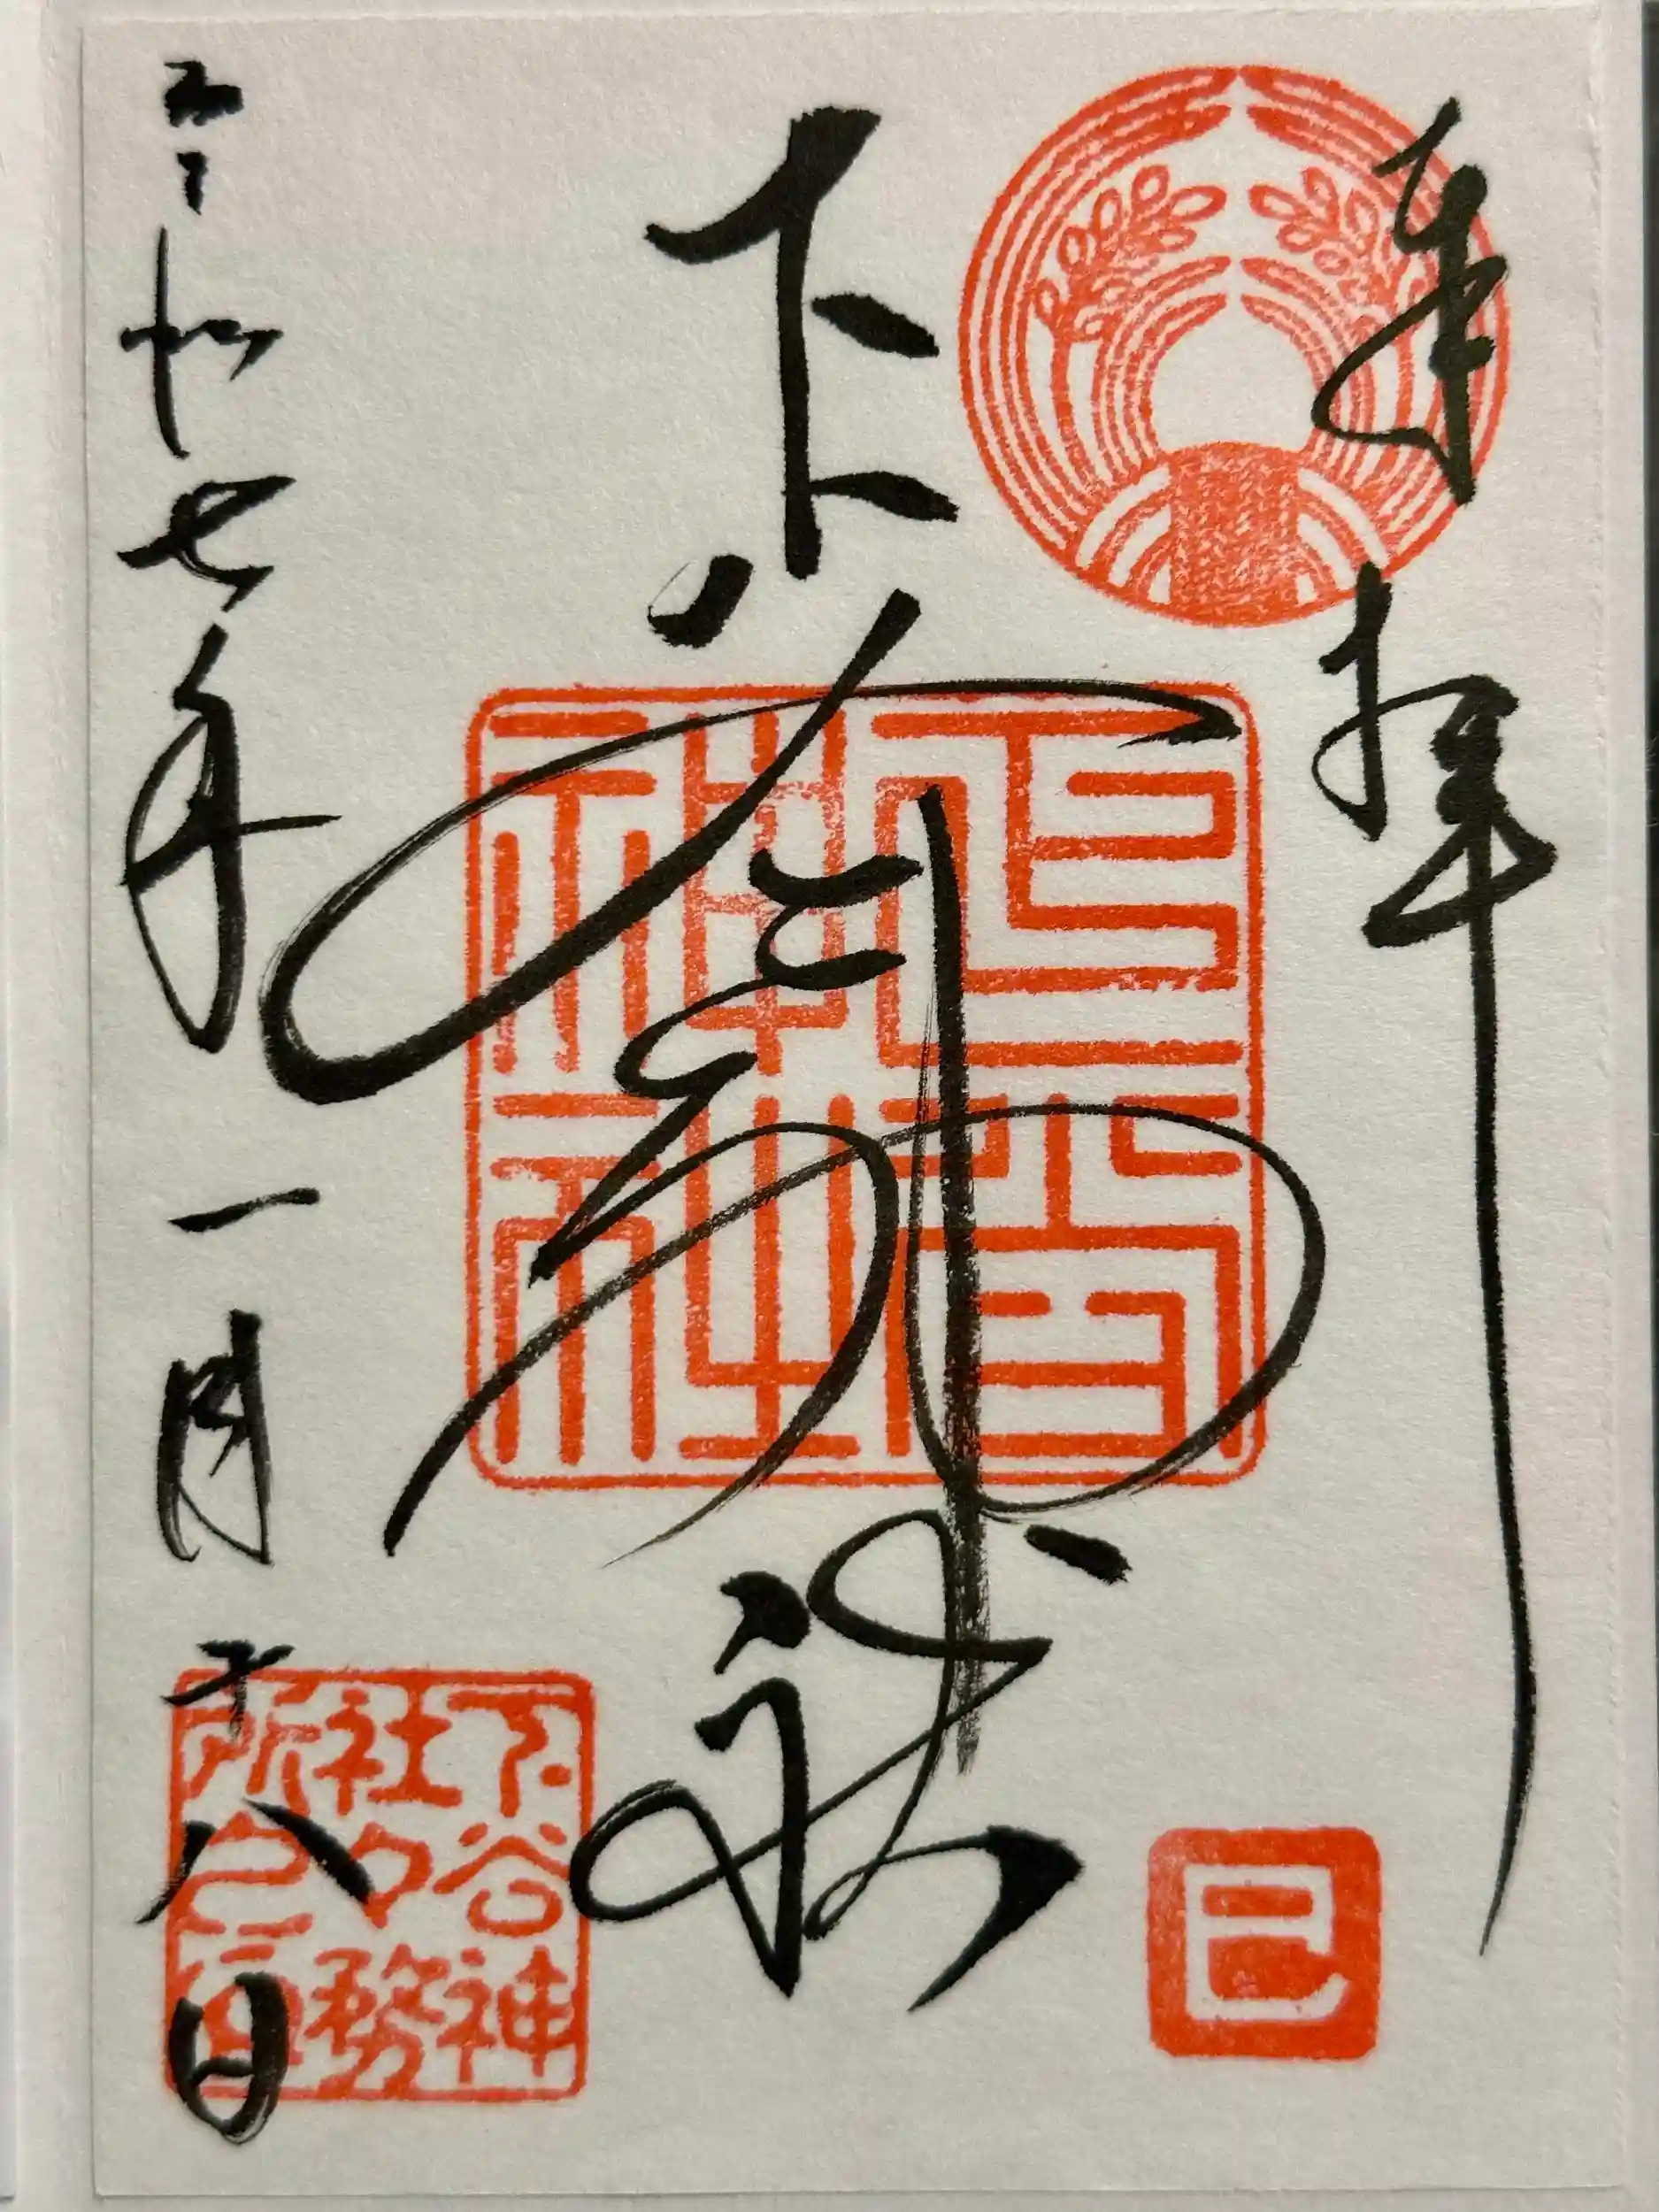 奉拝
下谷神社
令和七年一月十八日
下谷神
社々務
所之印
巳